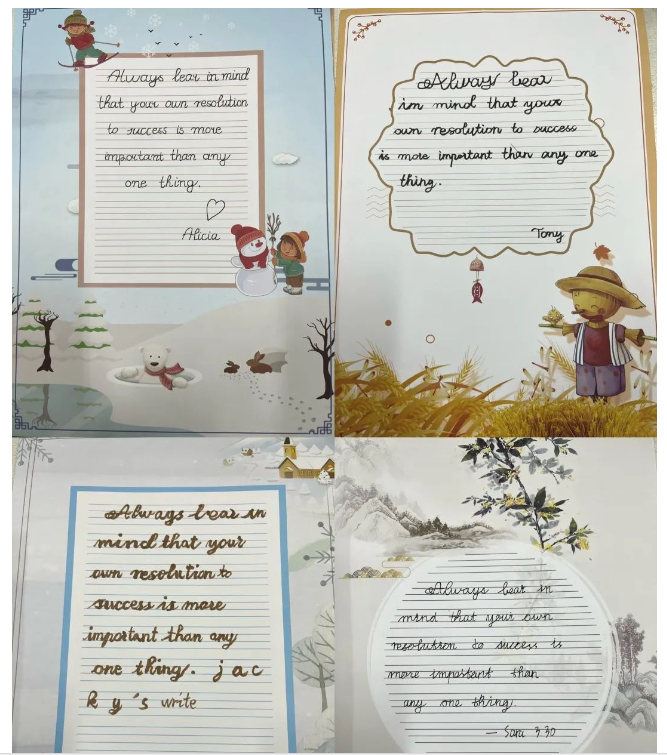 Always bear in mind
that your own resolution
to success is more
important than any
one thing.
Alicia
Always bear
in mind that your
own resolution to success
is more important than any one
thing.
Tony
Always bear in
mind that your
own resolution to
success is more
important than any
one thing. j a c
k y 's write
Always bear in
mind that your own
resolution to success is
more important than
any one thing.
— Sara 3.30